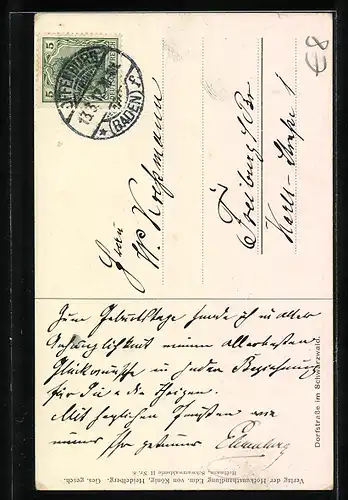 5 5
OFFENBURG
13.3.12
(BADEN)
€8
Frau
W. Koßmann
Freiburg i/Br
Karls-Straße 1
Zum Geburtstage sende ich in aller
Anhänglichkeit meinen allerbesten
Glückwünsche in jeder Beziehung
für Sie & die Ihrigen.
Mit herzlichen Grüßen wie
immer Ihr getreuer
Dorfstraße im Schwarzwald.
Verlag der Hofkunsthandlung Edm. von König, Heidelberg. Ges. gesch.
Hoffmann, Schwarzwaldserie II No. 8